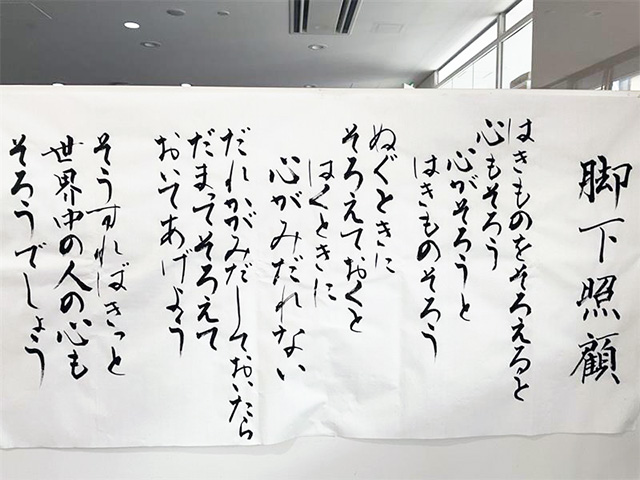 脚下照顧
はきものをそろえると
心もそろう
心がそろうと
はきものそろう
ぬぐときに
そろえておくと
はくときに
心がみだれない
だれかがみだしておいたら
だまってそろえて
おいてあげよう
そうすればきっと
世界中の人の心も
そろうでしょう